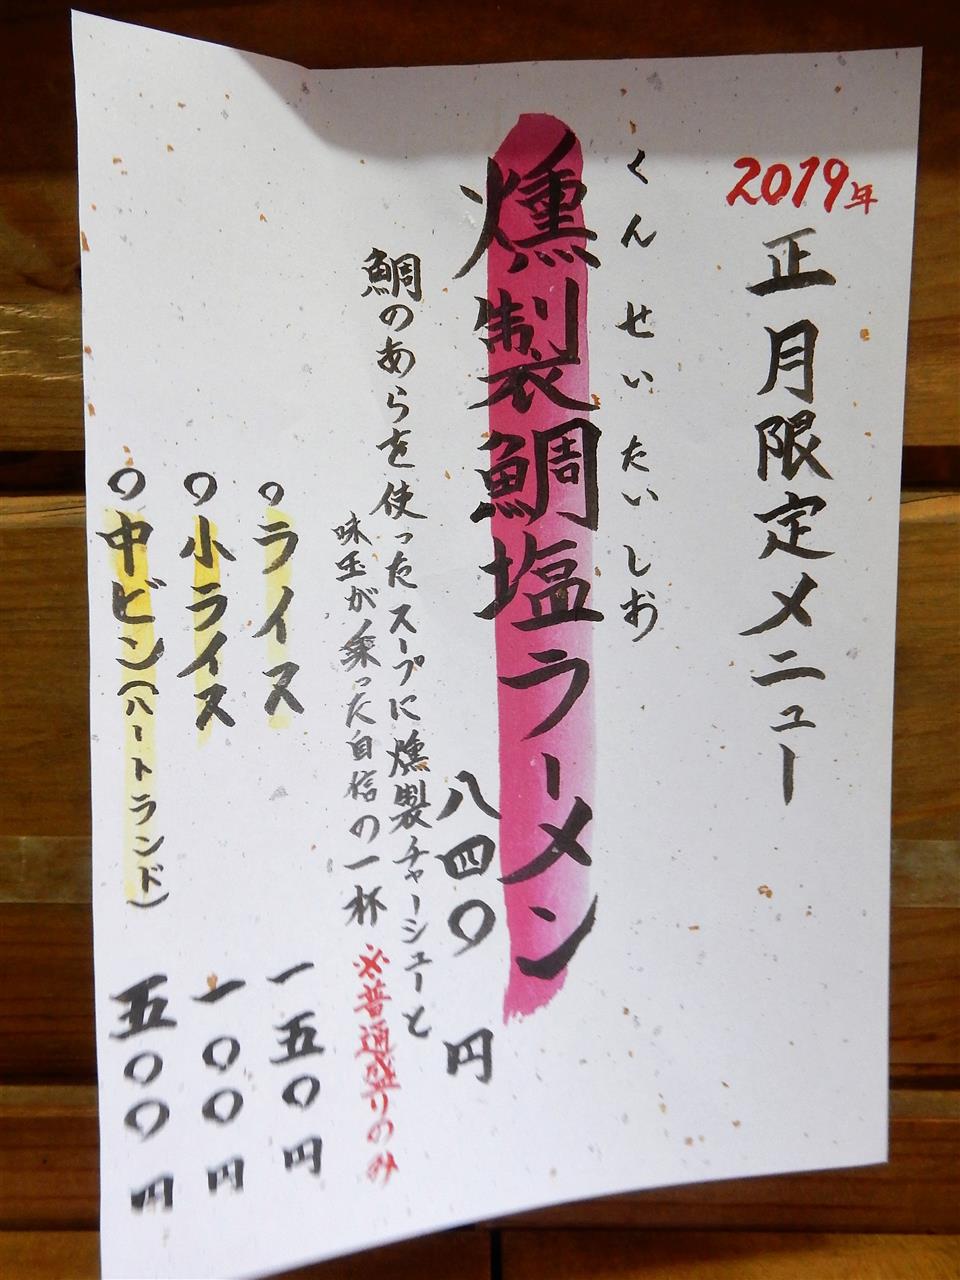 2019年
正月限定メニュー
くんせいたいしお
燻製鯛塩ラーメン
八四〇円
鯛のあらを使ったスープに燻製チャーシューと
味玉が乗った自信の一杯
※普通盛りのみ
○ライス 一五〇円
○小ライス 一〇〇円
○中ビン(ハートランド) 五〇〇円